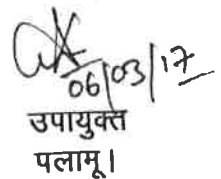 06/03/17
उपायुक्त
पलामू।